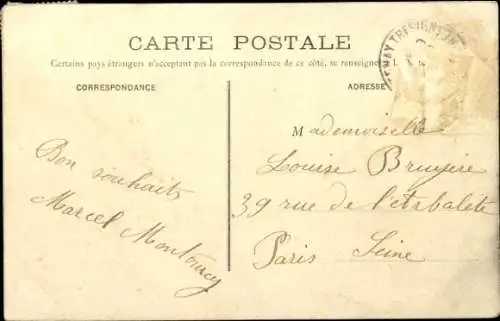 CARTE POSTALE
Certains pays étrangers n'acceptant pas la correspondance de ce côté, se renseigner
CORRESPONDANCE
ADRESSE
Bon souhaits
Marcel
Mademoiselle
Louise Bruyère
39 rue de l'Arbalète
Paris Seine